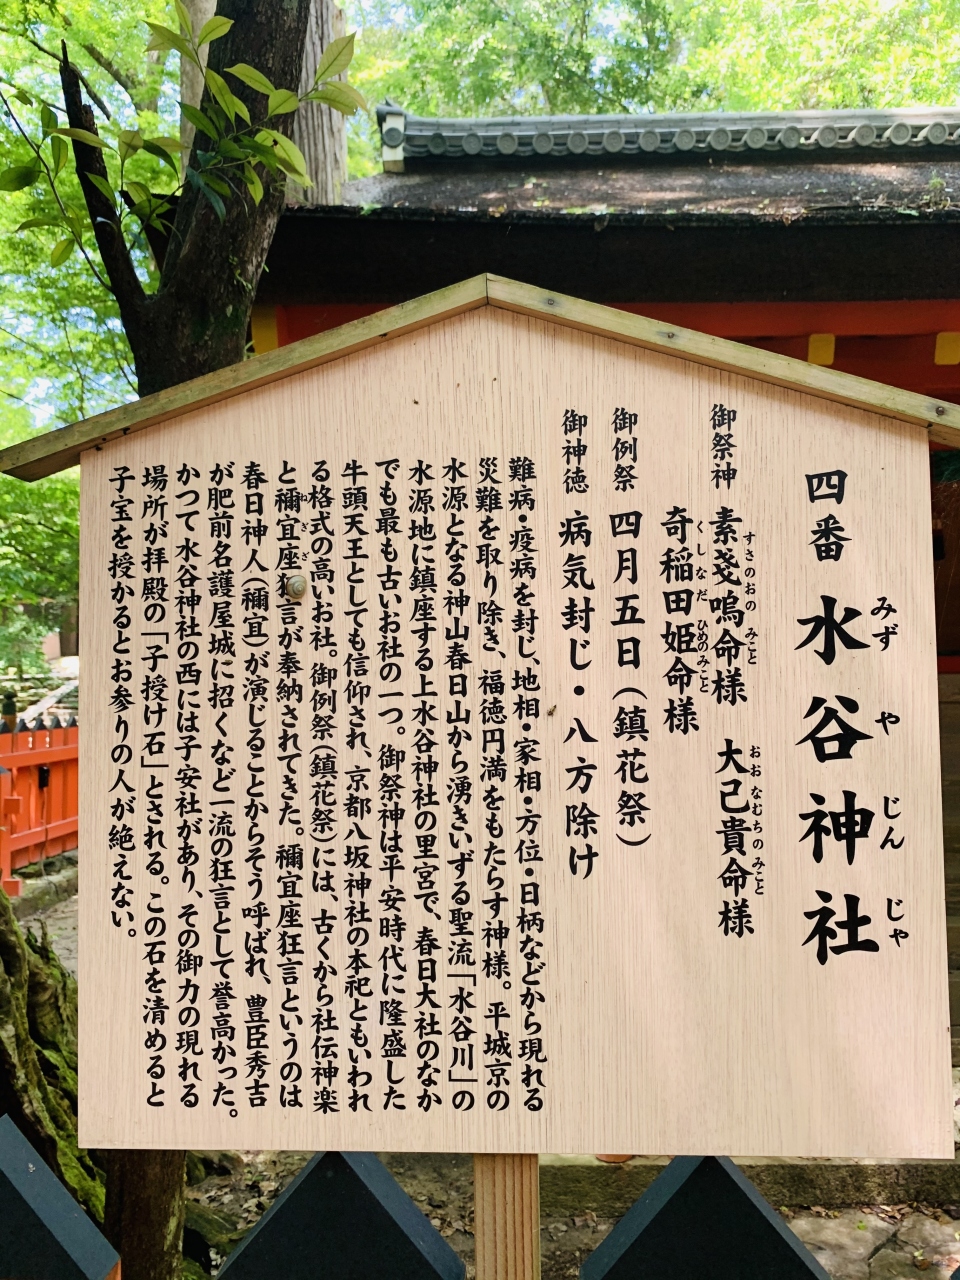 四番 水谷神社
みずや じんじゃ
御祭神
素戔嗚命様 大己貴命様
すさのおの みこと おおなむちの みこと
奇稲田姫命様
くしなだ ひめのみこと
御例祭 四月五日（鎮花祭）
御神徳 病気封じ・八方除け
難病・疫病を封じ、地相・家相・方位・日柄などから現れる
災難を取り除き、福徳円満をもたらす神様。平城京の
水源となる神山春日山から湧きいずる聖流「水谷川」の
水源地に鎮座する上水谷神社の里宮で、春日大社のなか
でも最も古いお社の一つ。御祭神は平安時代に隆盛した
牛頭天王としても信仰され、京都八坂神社の本祀ともいわれ
る格式の高いお社。御例祭（鎮花祭）には、古くから社伝神楽
と禰宜座狂言が奉納されてきた。禰宜座狂言というのは
ねぎざ
春日神人（禰宜）が演じることからそう呼ばれ、豊臣秀吉
が肥前名護屋城に招くなど一流の狂言として誉高かった。
かつて水谷神社の西には子安社があり、その御力の現れる
場所が拝殿の「子授け石」とされる。この石を清めると
子宝を授かるとお参りの人が絶えない。